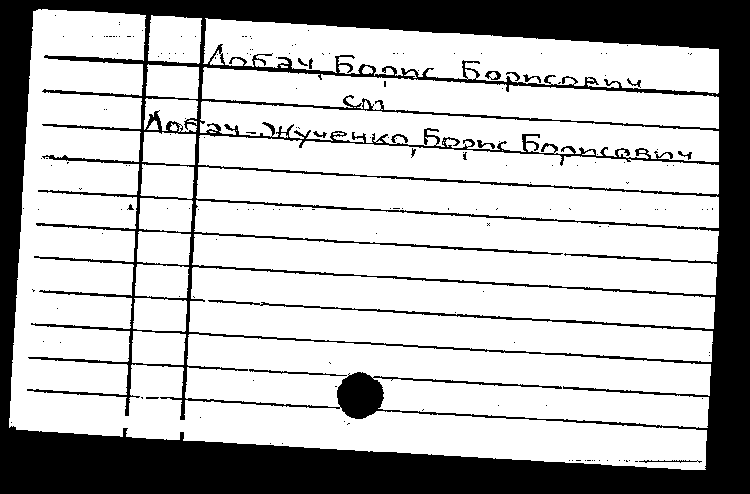 Лобач, Борис Борисович
см
Лобач-Жученко, Борис Борисович